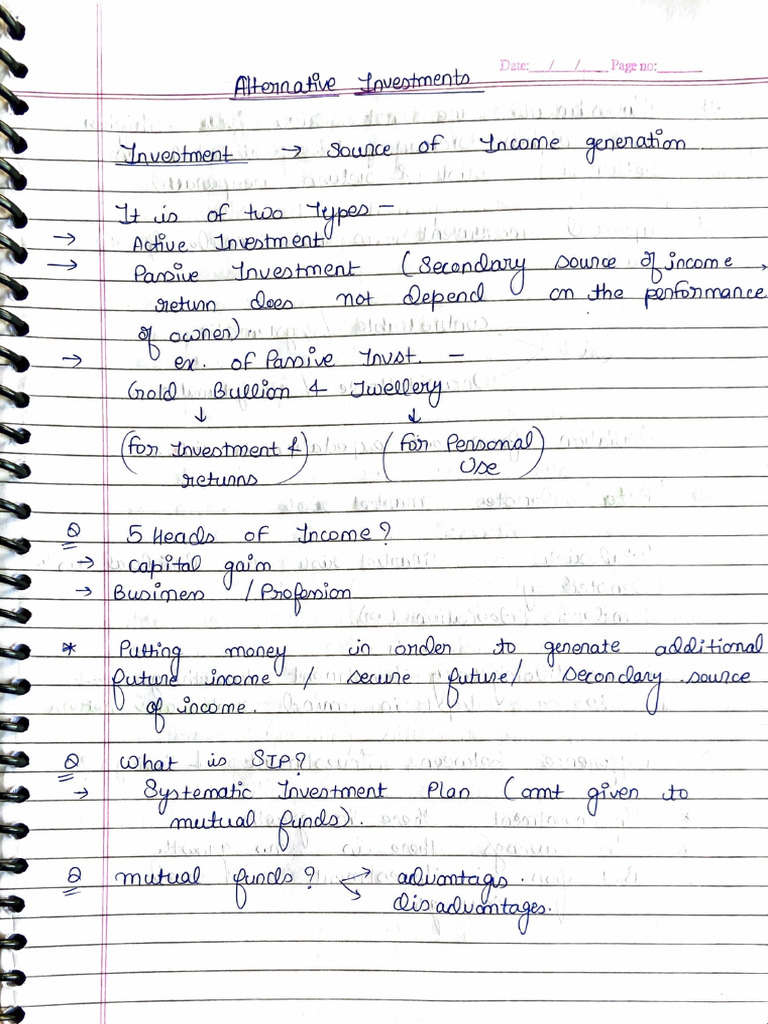 Date: __/__/____ Page no:______
Alternative Investments
Investment → Source of Income generation
It is of two Types –
→ Active Investment
→ Passive Investment (Secondary source of income,
return does not depend on the performance
of owner)
→ ex. of Passive Invst. –
Gold Bullion & Jwellery
↓ ↓
(for Investment & returns) (for Personal Use)
Q 5 Heads of Income?
→ Capital gain
→ Business / Profession
* Putting money in order to generate additional
future income / secure future / secondary source
of income.
Q What is SIP?
→ Systematic Investment Plan (amt given to
mutual funds).
Q mutual funds? → advantags.
→ disadvantages.